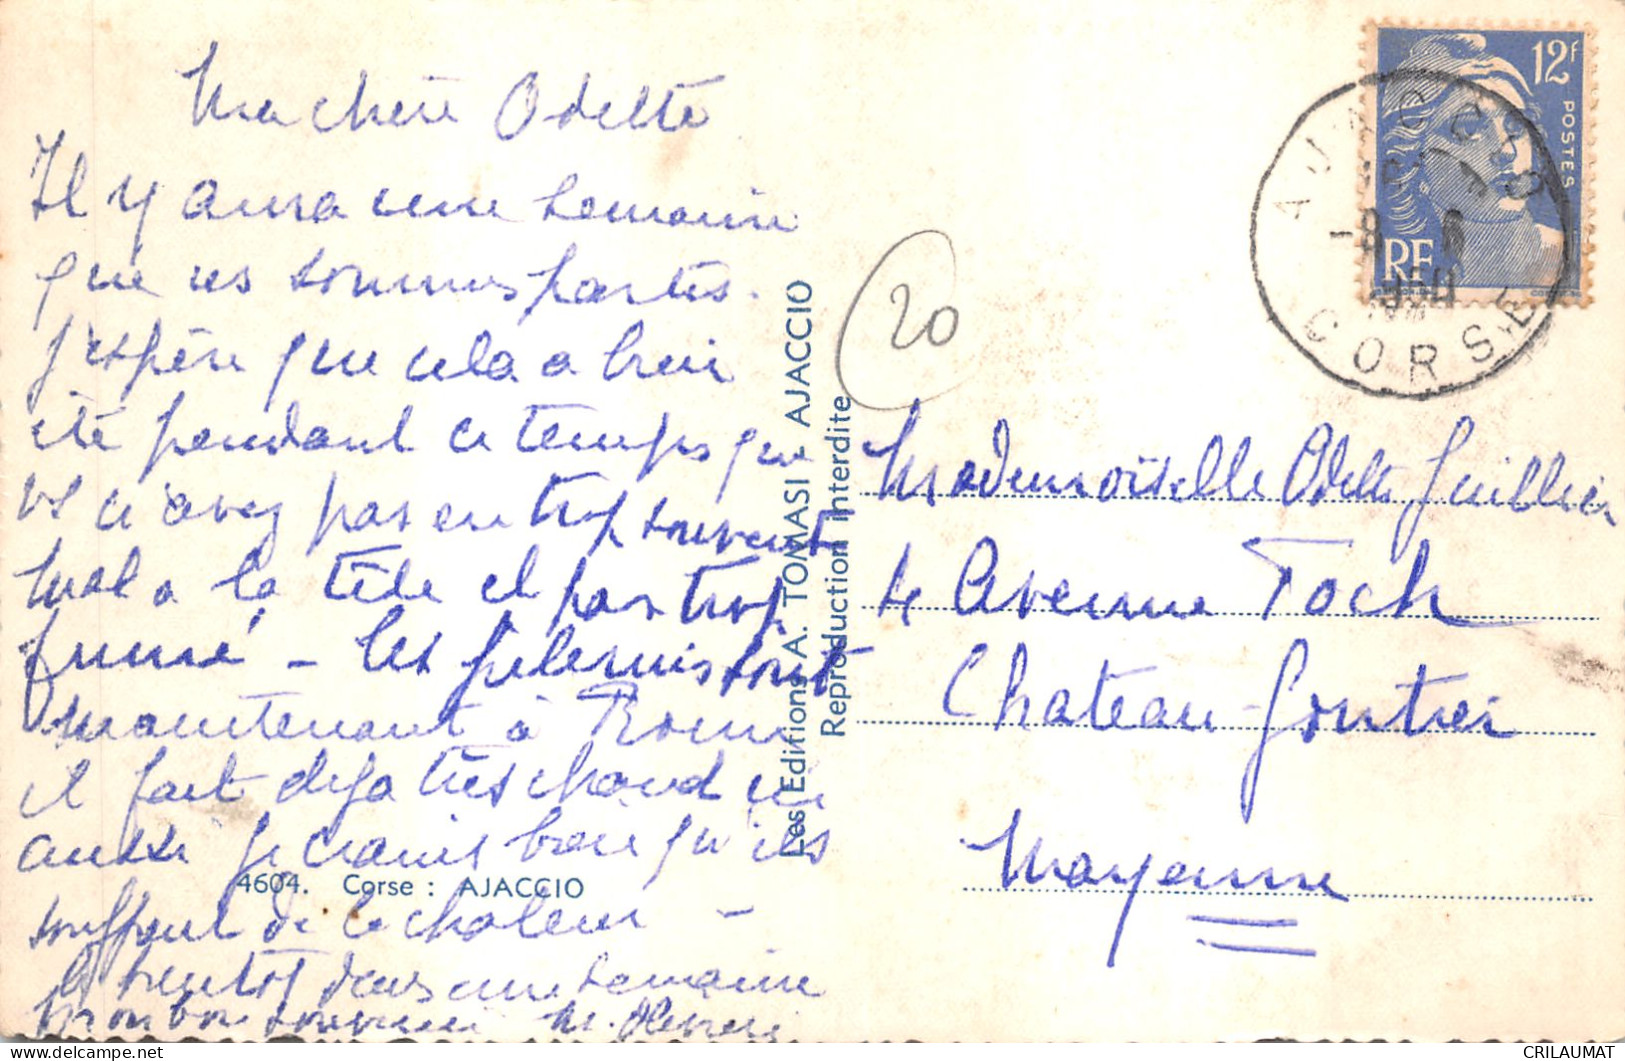 Ma chère Odette
Il y aura une semaine
que ns sommes parties.
J'espère que cela a bien
été pendant ce temps que
vs n'avez pas eu trop souvent
mal à la tête et pas trop
fumé - les pélerins sont
maintenant à Rome
il fait déjà très chaud ici
aussi je crains bien qu'ils
souffrent de la chaleur -
A bientôt dans une semaine
mon bon souvenir M.
4604. Corse : AJACCIO
Les Editions A. TOMASI - AJACCIO
Reproduction Interdite
20
12F
POSTES
RF
AJACCIO
-8 6
1950
CORSE
Mademoiselle Odette
Avenue Foch
Chateau-Gontier
Mayenne
CRILAUMAT